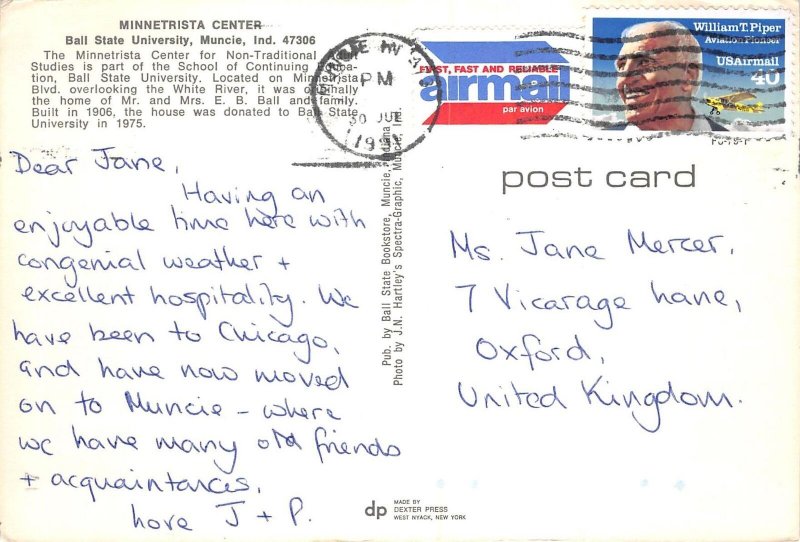 MINNETRISTA CENTER
Ball State University, Muncie, Ind. 47306
The Minnetrista Center for Non-Traditional
Studies is part of the School of Continuing
tion, Ball State University. Located on Minnetrista
Blvd. overlooking the White River, it was originally
the home of Mr. and Mrs. E. B. Ball and family.
Built in 1906, the house was donated to Ball State
University in 1975.
Dear Jane,
Having an
enjoyable time here with
congenial weather +
excellent hospitality. We
have been to Chicago,
and have now moved
on to Muncie - where
we have many old friends
+ acquaintances.
Love J + P.
Pub. by Ball State Bookstore, Muncie, Indiana
Photo by J.N. Hartley's Spectra-Graphic, Muncie, Ind.
MUNCIE IN
PM
30 JUN
FAST, FAST AND RELIABLE
airmail
par avion
William T. Piper
Aviation Pioneer
USAirmail
40
post card
Ms. Jane Mercer,
7 Vicarage Lane,
Oxford,
United Kingdom.
dp
MADE BY
DEXTER PRESS
WEST NYACK, NEW YORK